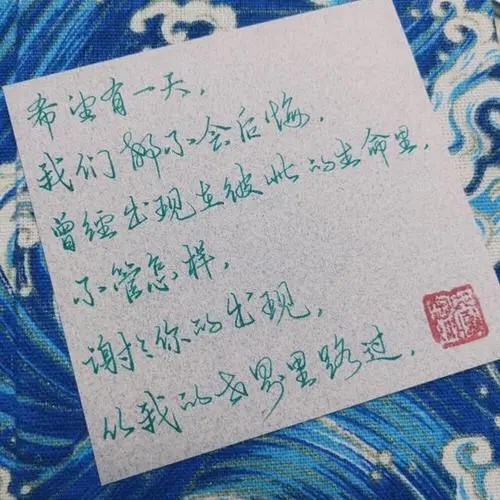 希望有一天，
我们都不会后悔，
曾经出现在彼此的生命里，
不管怎样，
谢谢你的出现，
从我的世界里路过．